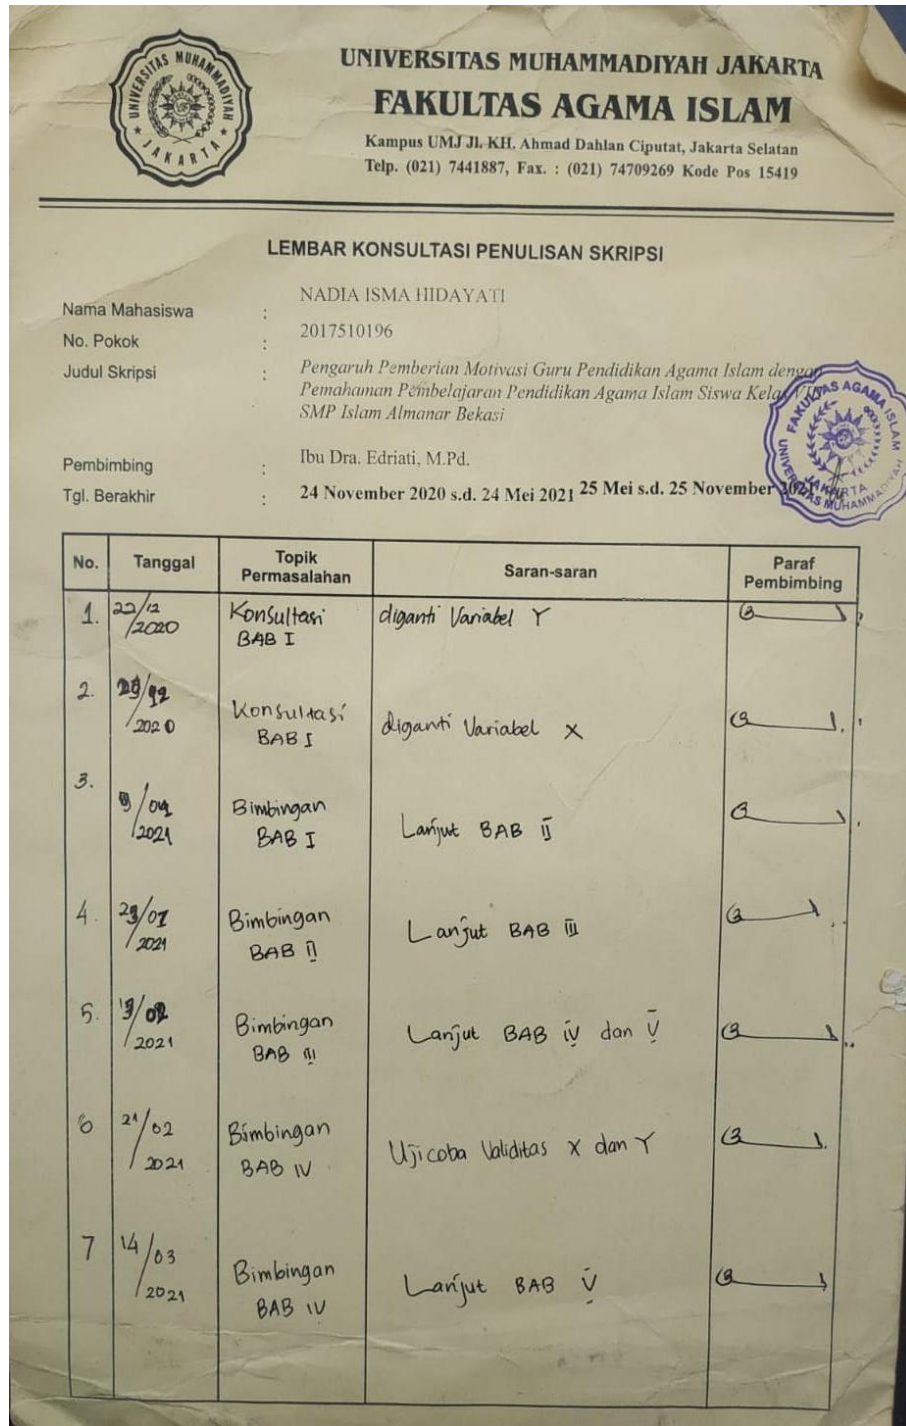 UNIVERSITAS MUHAMMADIYAH
JAKARTA
UNIVERSITAS MUHAMMADIYAH JAKARTA
FAKULTAS AGAMA ISLAM
Kampus UMJ Jl. KH. Ahmad Dahlan Ciputat, Jakarta Selatan
Telp. (021) 7441887, Fax. : (021) 74709269 Kode Pos 15419
LEMBAR KONSULTASI PENULISAN SKRIPSI
Nama Mahasiswa : NADIA ISMA HIDAYATI
No. Pokok : 2017510196
Judul Skripsi : Pengaruh Pemberian Motivasi Guru Pendidikan Agama Islam dengan
Pemahaman Pembelajaran Pendidikan Agama Islam Siswa Kelas
SMP Islam Almanar Bekasi
Pembimbing : Ibu Dra. Edriati, M.Pd.
Tgl. Berakhir : 24 November 2020 s.d. 24 Mei 2021 25 Mei s.d. 25 November 2021
FAKULTAS AGAMA ISLAM
UNIVERSITAS MUHAMMADIYAH
JAKARTA
No. Tanggal Topik Permasalahan Saran-saran Paraf Pembimbing
1. 22/12/2020 Konsultasi BAB I diganti Variabel Y
2. /2020 Konsultasi BAB I diganti Variabel X
3. /2021 Bimbingan BAB I Lanjut BAB II
4. 23/01/2021 Bimbingan BAB II Lanjut BAB III
5. 13/02/2021 Bimbingan BAB III Lanjut BAB IV dan V
6 21/02/2021 Bimbingan BAB IV Ujicoba Validitas X dan Y
7 14/03/2021 Bimbingan BAB IV Lanjut BAB V